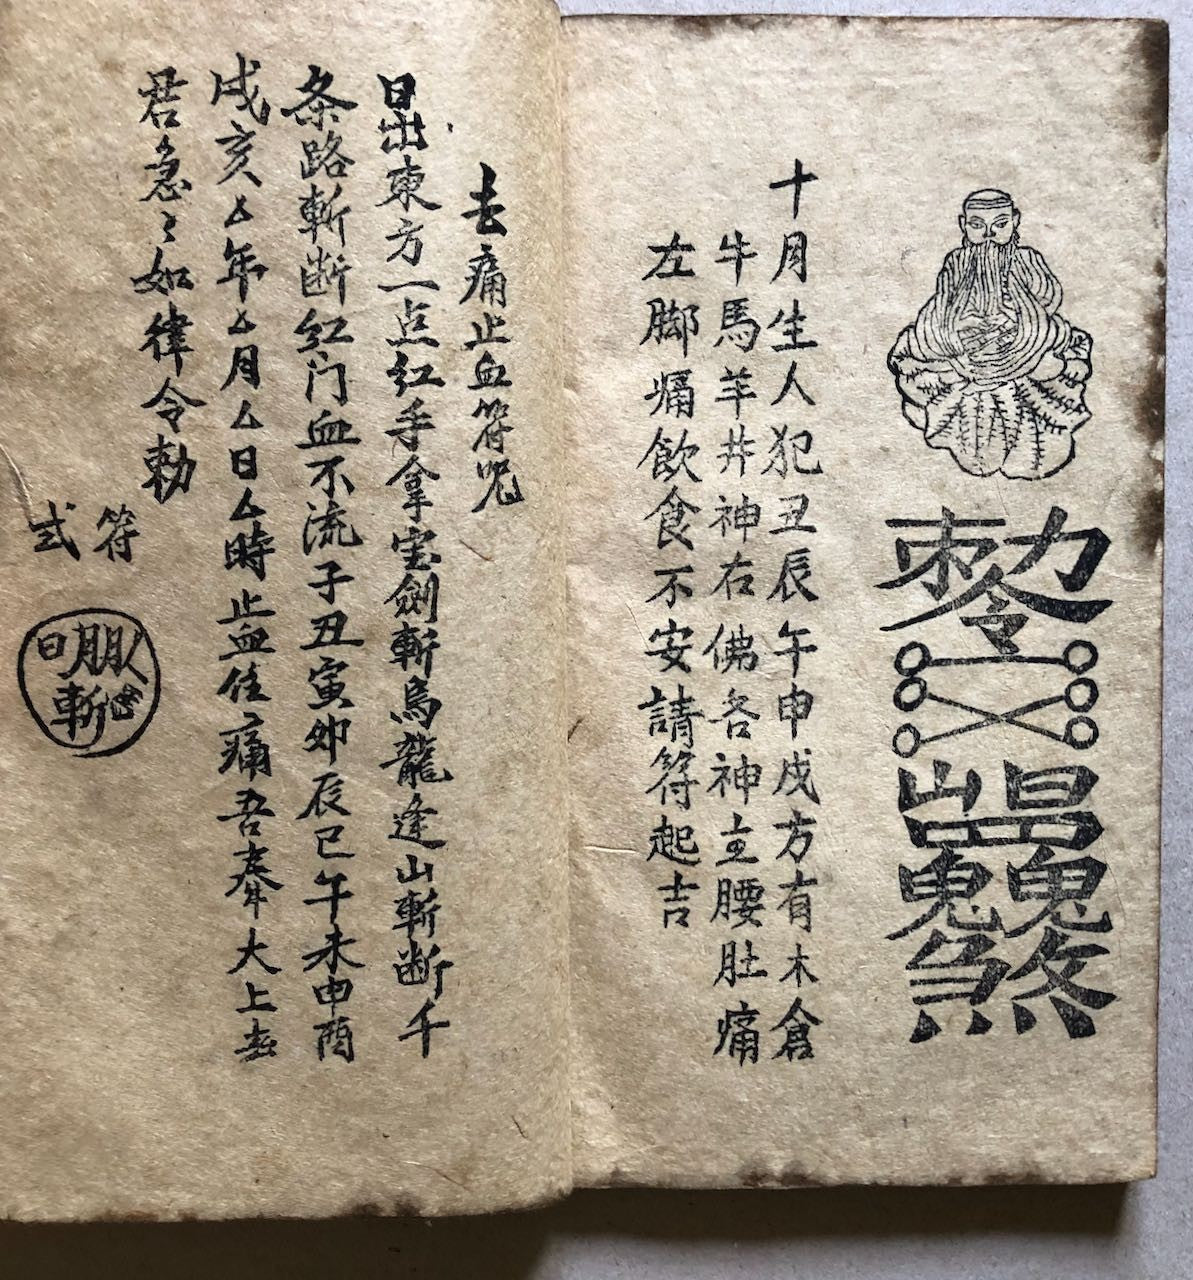 十月生人犯丑辰午申戌方有木倉
牛馬羊井神右佛各神主腰肚痛
左脚痛飲食不安請符起吉
去痛止血符咒
日出東方一点红手拿宝劍斬烏龍逢山斬断千
条路斬断红门血不流子丑寅卯辰巳午未申酉
戌亥厶年厶月厶日厶時止血住痛吾奉大上老
君急〻如律令勅
符
式